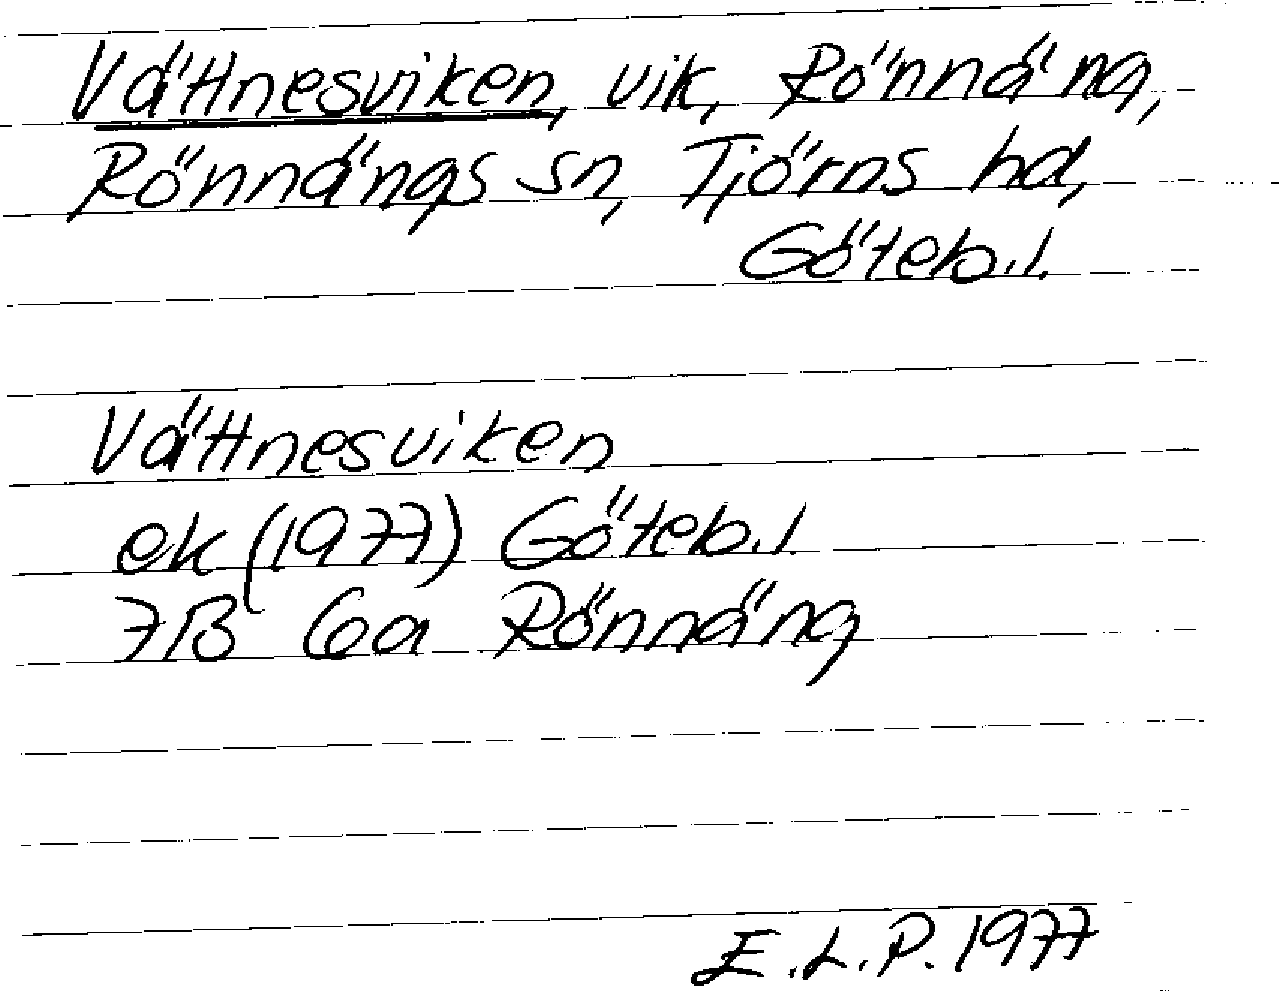 Vättnesviken, vik, Rönnäng,
Rönnängs sn, Tjörns hd,
Göteb.l.
Vättnesviken
ek (1977) Göteb.l.
7B 6a Rönnäng
E.L.P. 1977